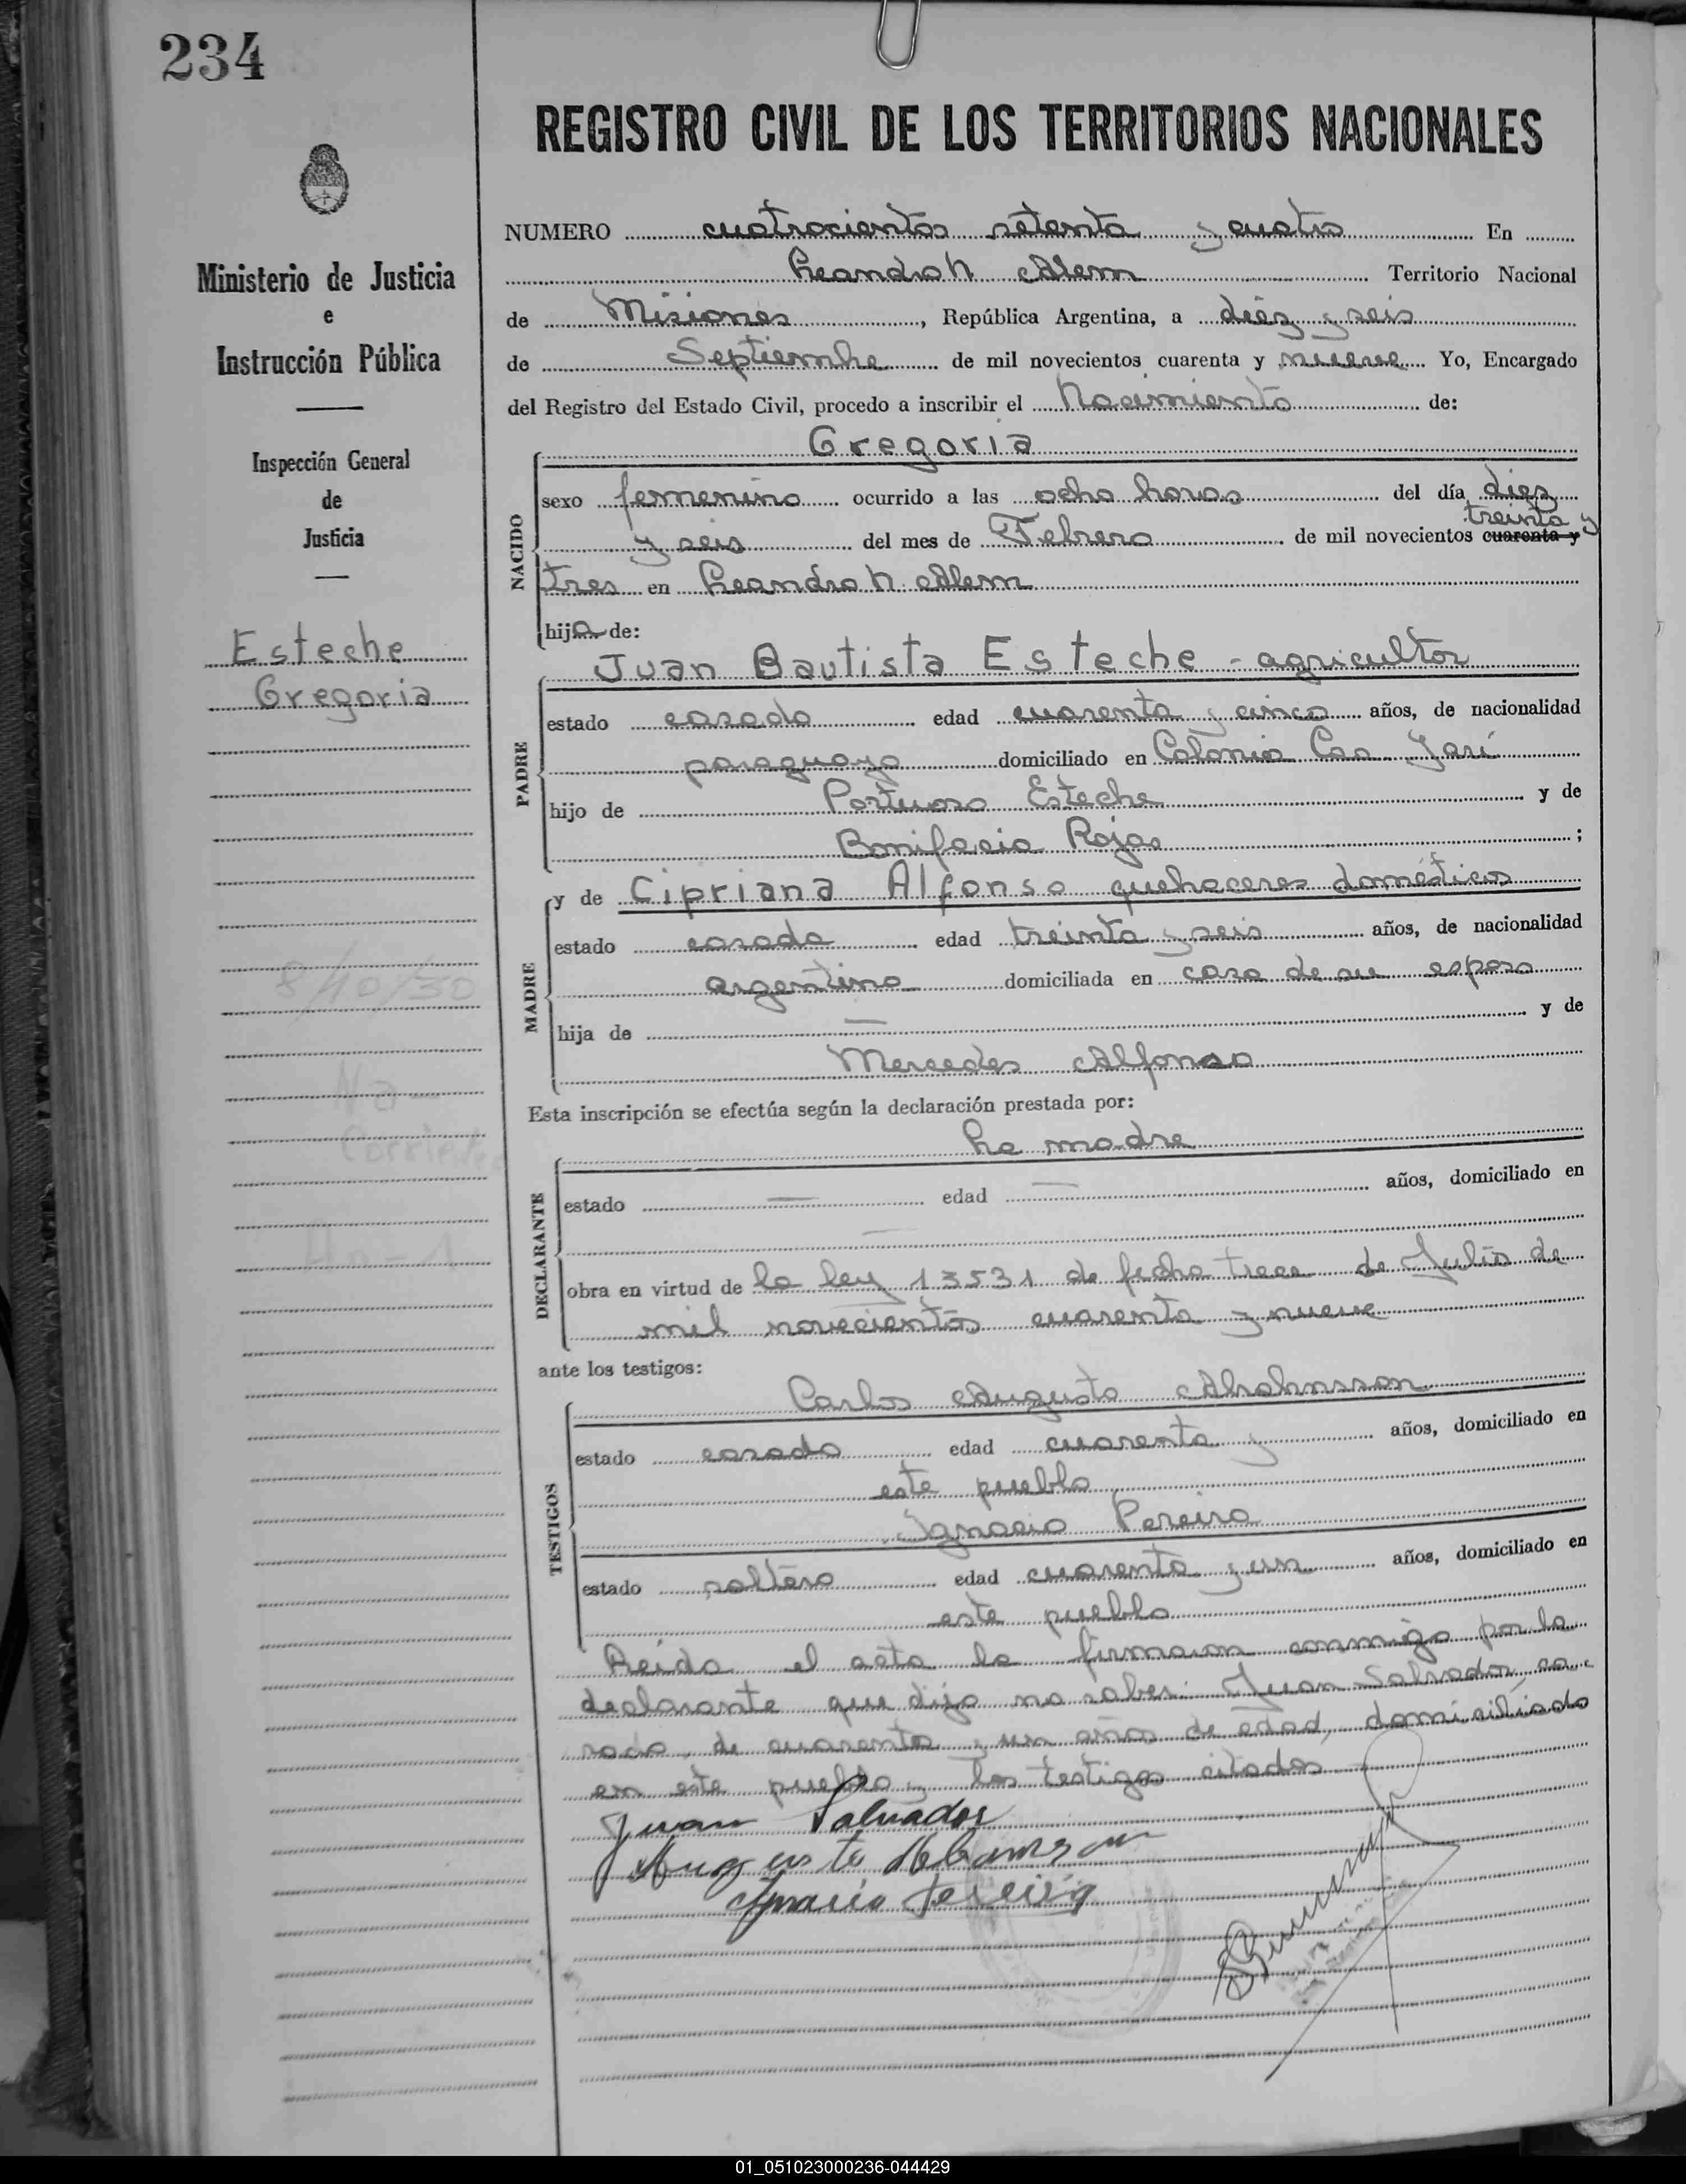 234
REGISTRO CIVIL DE LOS TERRITORIOS NACIONALES
Ministerio de Justicia
e
Instrucción Pública
Inspección General
de
Justicia
Esteche
Gregoria
8/10/50
Na -
Corriente
NUMERO cuatrocientos setenta y cuatro En
Leandro N Alem Territorio Nacional
de Misiones, República Argentina, a diez y seis
de Septiembre de mil novecientos cuarenta y nueve Yo, Encargado
del Registro del Estado Civil, procedo a inscribir el Nacimiento de:
NACIDO
Gregoria
sexo femenino ocurrido a las ocho horas del día diez
treinta y
y seis del mes de Febrero de mil novecientos cuarenta y
tres en Leandro N. Alem
hija de:
PADRE
Juan Bautista Esteche - agricultor
estado casado edad cuarenta y cinco años, de nacionalidad
paraguayo domiciliado en Colonia Caa Yarí
hijo de Portuoso Esteche y de
Bonifacia Rojas ;
MADRE
y de Cipriana Alfonso quehaceres domésticos
estado casada edad treinta y seis años, de nacionalidad
argentina domiciliada en casa de su esposo
hija de — y de
Mercedes Alfonso
Esta inscripción se efectúa según la declaración prestada por:
DECLARANTE
La madre
estado — edad — años, domiciliado en
—
obra en virtud de la ley 13531 de fecha trece de Julio de
mil novecientos cuarenta y nueve
ante los testigos:
TESTIGOS
Carlos Augusto Abrahmsson
estado casado edad cuarenta y años, domiciliado en
este pueblo
Ignacio Pereira
estado soltero edad cuarenta y un años, domiciliado en
este pueblo
Leída el acta la firmaron conmigo por la
declarante que dijo no saber Juan Salvador, ca-
sado, de cuarenta y un años de edad, domiciliado
en este pueblo y los testigos citados
Juan Salvador
Augusto
Ignacio Pereira
01_051023000236-044429